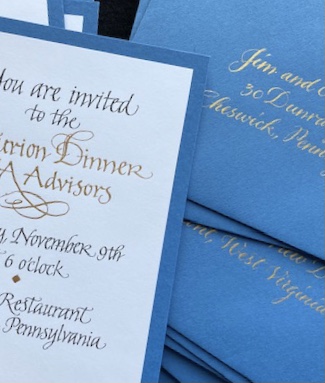 You are invited
to the
urion Dinner
A Advisors
y, November 9th
6 o'clock
Restaurant
Pennsylvania
Jim and
30 Dunra
Cheswick, Penn
West Virginia